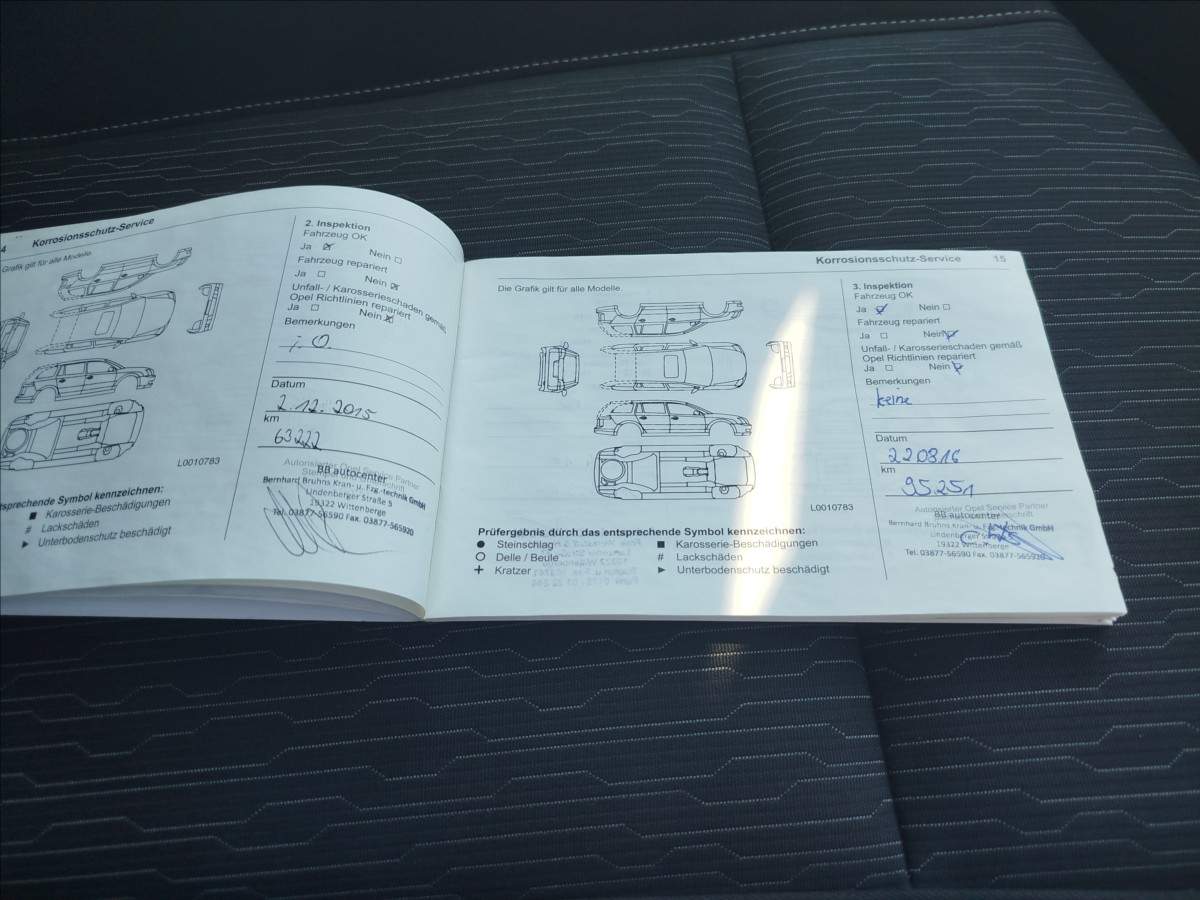 4 Korrosionsschutz-Service
Grafik gilt für alle Modelle.
L0010783
sprechende Symbol kennzeichnen:
■ Karosserie-Beschädigungen
# Lackschäden
► Unterbodenschutz beschädigt
2. Inspektion
Fahrzeug OK
Ja Nein
Fahrzeug repariert
Ja Nein
Unfall- / Karosserieschaden gemäß
Opel Richtlinien repariert
Ja Nein
Bemerkungen
i.O.
Datum
2.12.2015
km
63222
Autorisierter Opel Service Partner
BB autocenter
Bernhard Bruhns Kran- u. Fzg.-technik GmbH
Lindenberger Straße 5
19322 Wittenberge
Tel. 03877-56590 Fax. 03877-565920
Korrosionsschutz-Service 15
Die Grafik gilt für alle Modelle.
L0010783
Prüfergebnis durch das entsprechende Symbol kennzeichnen:
● Steinschlag ■ Karosserie-Beschädigungen
○ Delle / Beule # Lackschäden
+ Kratzer ► Unterbodenschutz beschädigt
3. Inspektion
Fahrzeug OK
Ja Nein
Fahrzeug repariert
Ja Nein
Unfall- / Karosserieschaden gemäß
Opel Richtlinien repariert
Ja Nein
Bemerkungen
keine
Datum
220816
km
95251
Autorisierter Opel Service Partner
BB autocenter
Bernhard Bruhns Kran- u. Fzg.-technik GmbH
Lindenberger
19322 Wittenberge
Tel. 03877-56590 Fax. 03877-565920